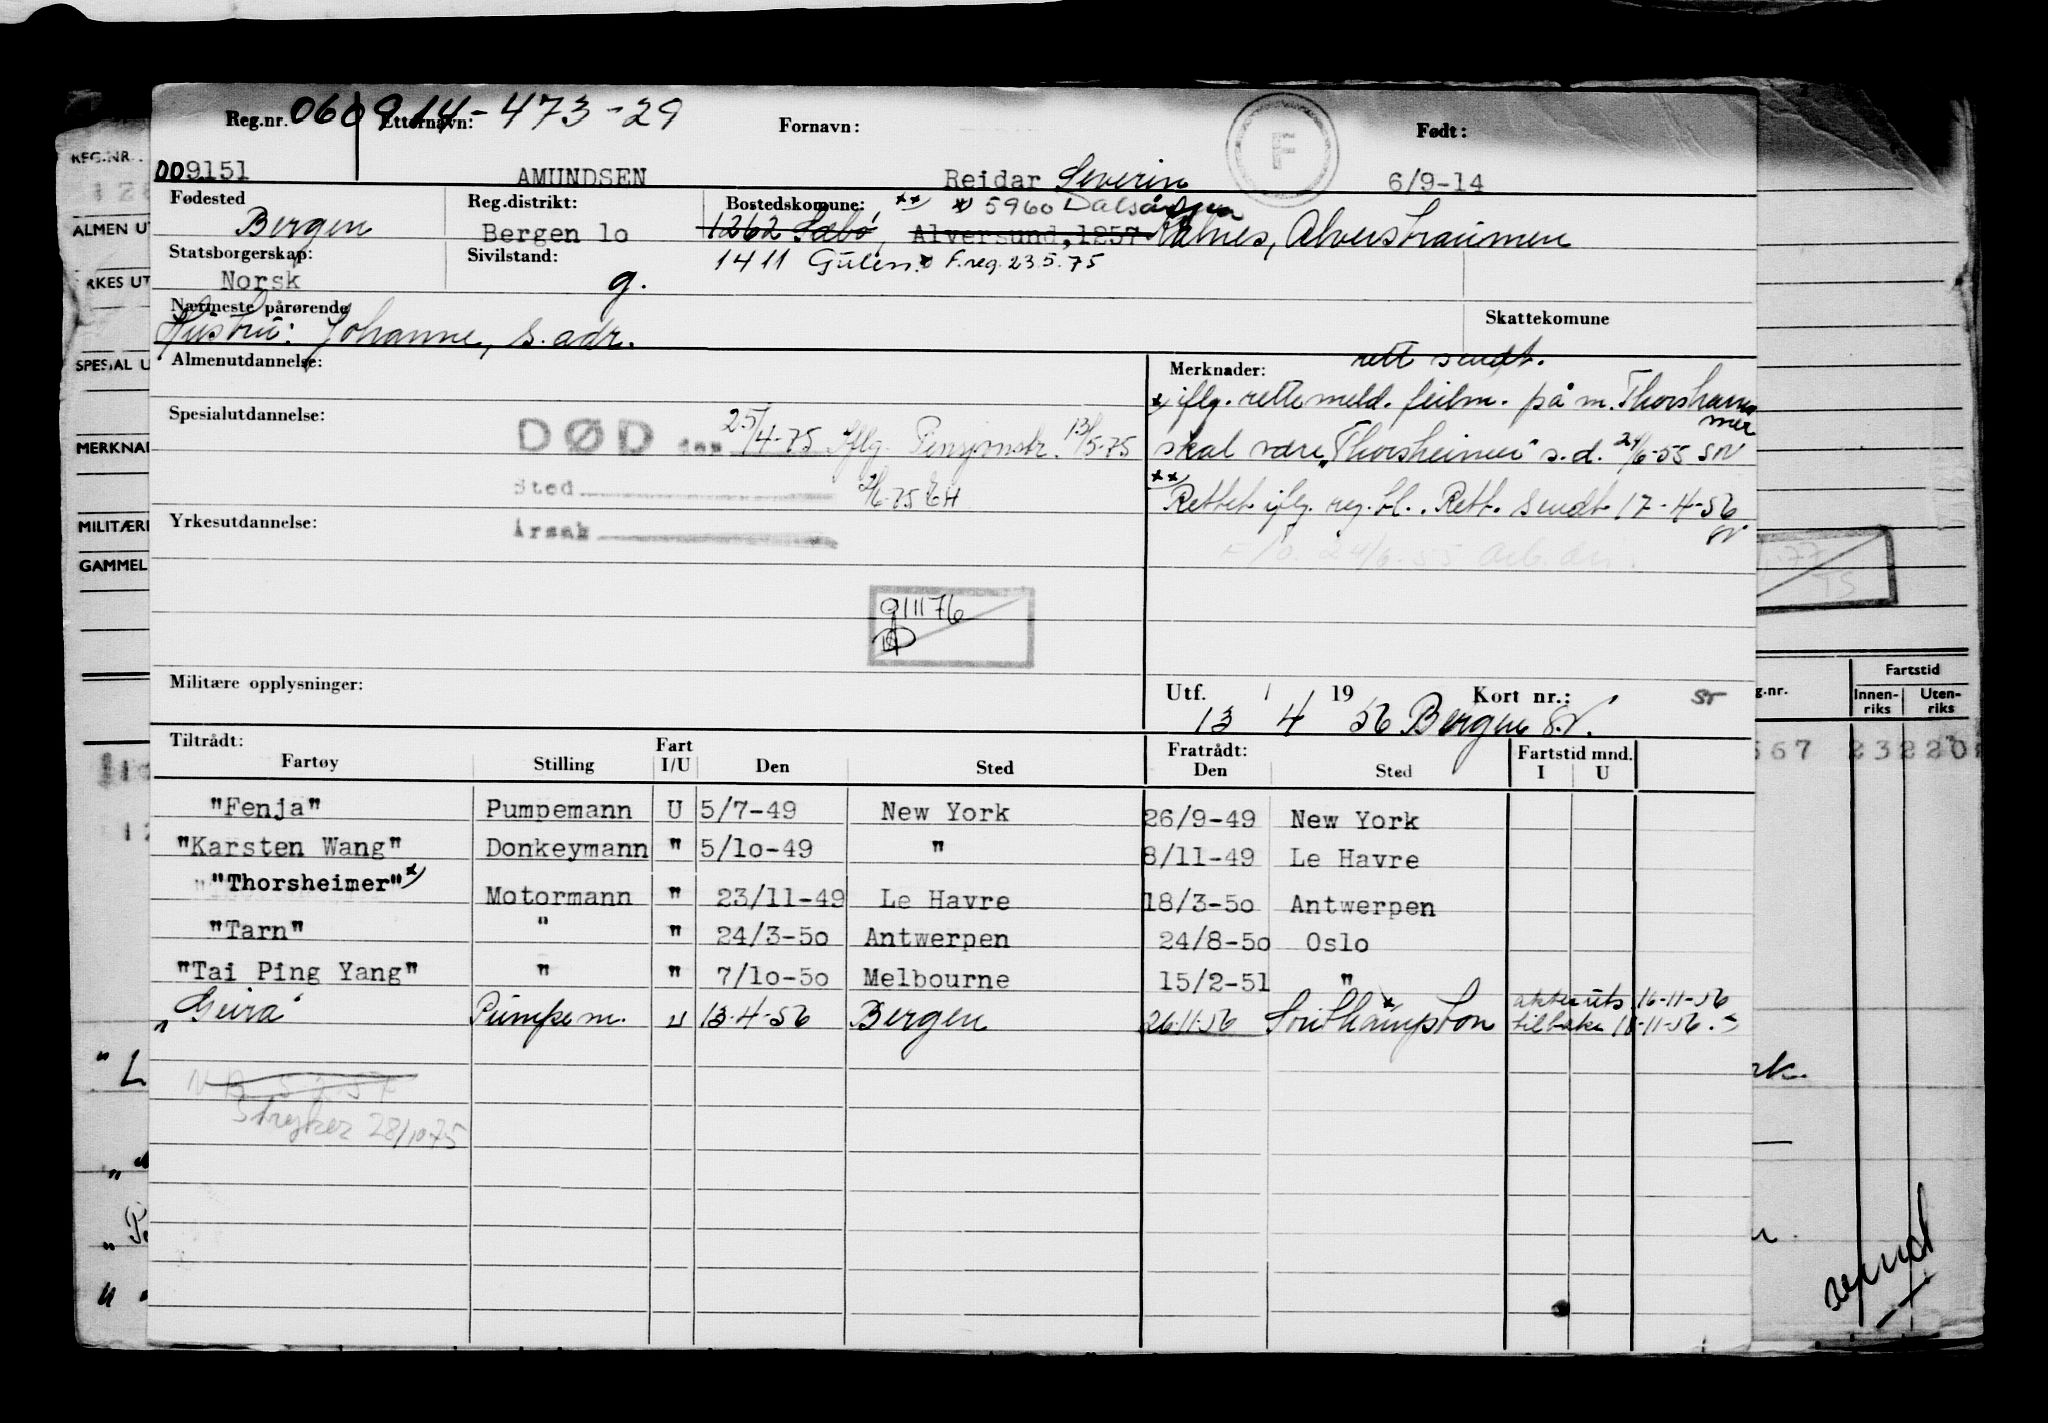 Reg.nr. 060914-473-29 Etternavn: Fornavn: F Født:
009151 AMUNDSEN Reidar Severin 6/9-14
Fødested Reg.distrikt: Bostedskomune: xx) x) 5960 Dalsøyra
Bergen Bergen lo 1262 Sæbø, Alversund, 1257 Alversstraumen
Statsborgerskap: Sivilstand: 1411 Gulen. x F.reg. 23.5.75
Norsk g.
Nærmeste pårørende Skattekomune
Hustru: Johanne, s. adr.
Almenutdannelse: Merknader: rett sendt.
x) iflg. rettemeld. feilm. på m. Thorshammer
Spesialutdannelse: DØD den 25/4-75 Iflg. Pensjonstr. 13/5-75
skal være "Thorsheimer" s.d. 24/6-55 SN
Sted 2/6-75 EH
xx) Rettet iflg. reg. bl.. Rett. sendt 17-4-56
Yrkesutdannelse: Årsak
911176
Militære opplysninger: Utf. / 19 Kort nr.:
13 4 56 Bergen
Tiltrådt: Fratrådt:
Fartøy Stilling Fart I/U Den Sted Den Sted Fartstid mnd. I U
"Fenja" Pumpemann U 5/7-49 New York 26/9-49 New York
"Karsten Wang" Donkeymann " 5/lo-49 " 8/11-49 Le Havre
"Thorsheimer" x) Motormann " 23/11-49 Le Havre 18/3-5o Antwerpen
"Tarn" " " 24/3-5o Antwerpen 24/8-5o Oslo
"Tai Ping Yang" " " 7/lo-5o Melbourne 15/2-51 "
"Geira" Pumpem. u 13-4-56 Bergen 26.11.56 Southampton 16-11-56
tilbake
Stryker 28/10 75
REG.NR.
ALMEN UT
RKES UT
SPESIAL U
MERKNAD
MILITÆRE
GAMMEL
g.nr. Fartstid
Innen-riks Uten-riks
567 23220